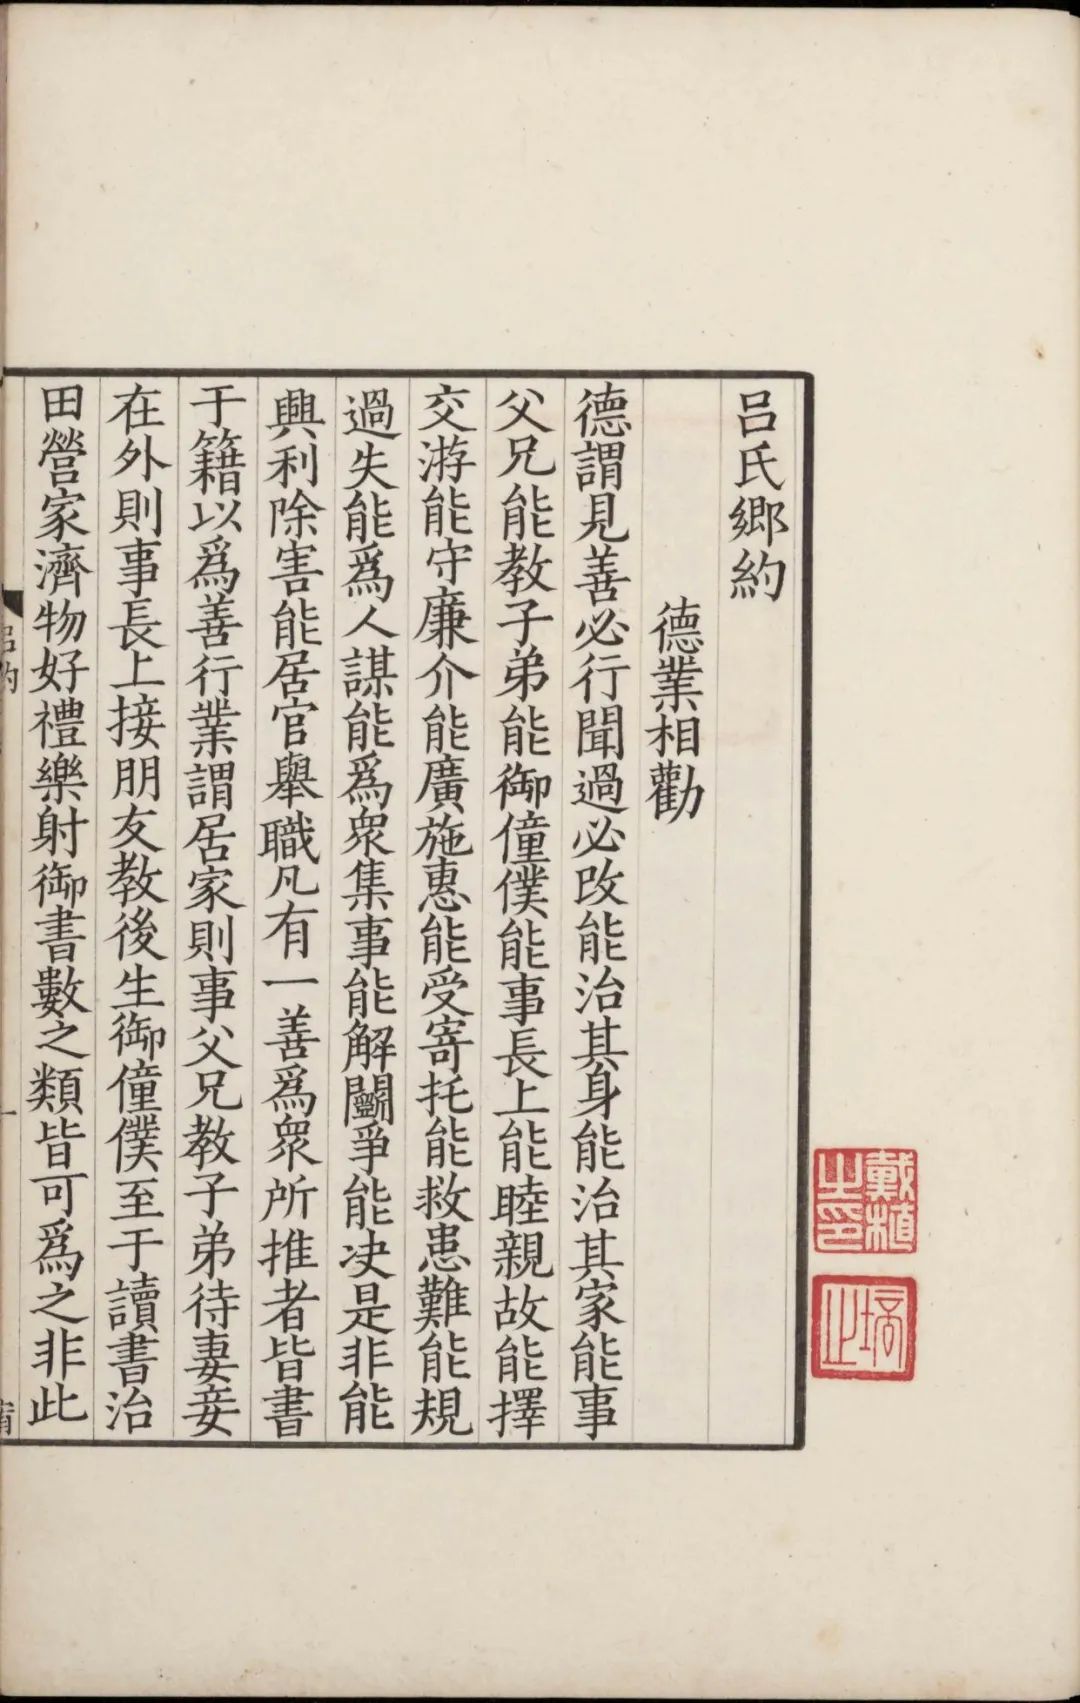 吕氏鄉約
德業相勸
德謂見善必行聞過必改能治其身能治其家能事
父兄能教子弟能御僮僕能事長上能睦親故能擇
交游能守廉介能廣施惠能受寄托能救患難能規
過失能爲人謀能爲衆集事能解鬭爭能决是非能
興利除害能居官舉職凡有一善爲衆所推者皆書
于籍以爲善行業謂居家則事父兄教子弟待妻妾
在外則事長上接朋友教後生御僮僕至于讀書治
田營家濟物好禮樂射御書數之類皆可爲之非此
戴植之印